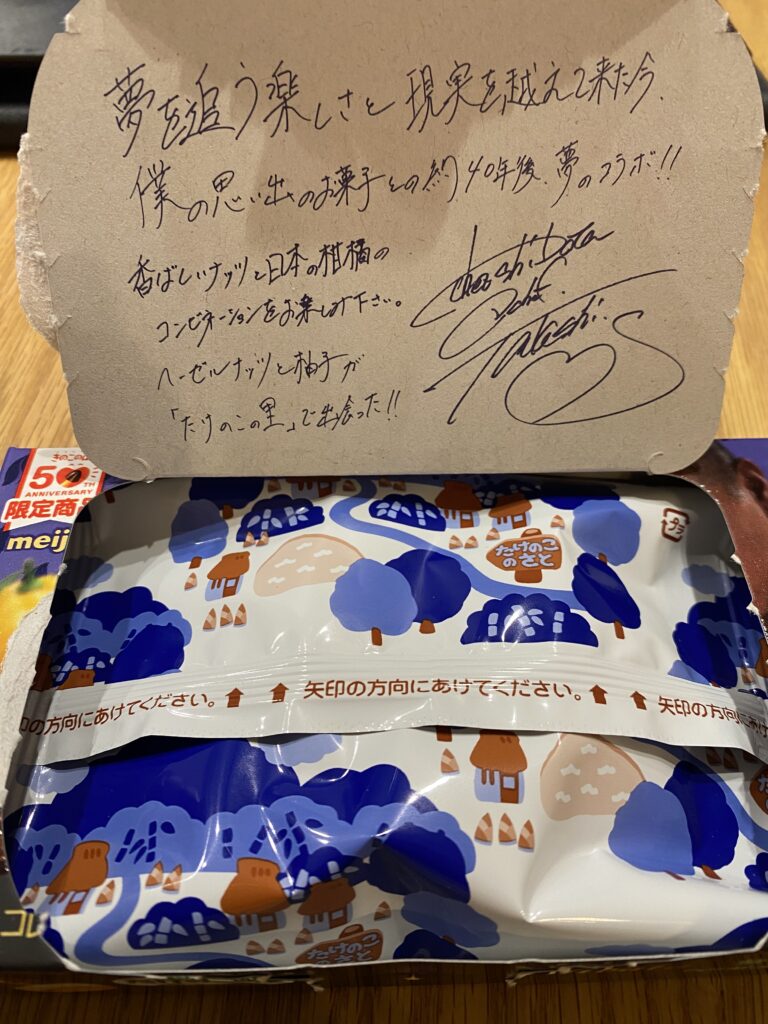 夢を追う楽しさと現実を越えて来た今、
僕の思い出のお菓子との約40年後、夢のコラボ!!
香ばしいナッツと日本の柑橘の
コンビネーションをお楽しみ下さい。
ヘーゼルナッツと柚子が
「たけのこの里」で出会った!!
Takashi
50TH
ANNIVERSARY
限定商
meij
たけのこ
のさと
プラ
印の方向にあけてください。
矢印の方向にあけてください。
矢印の方向にあけ
たけのこ
コレ